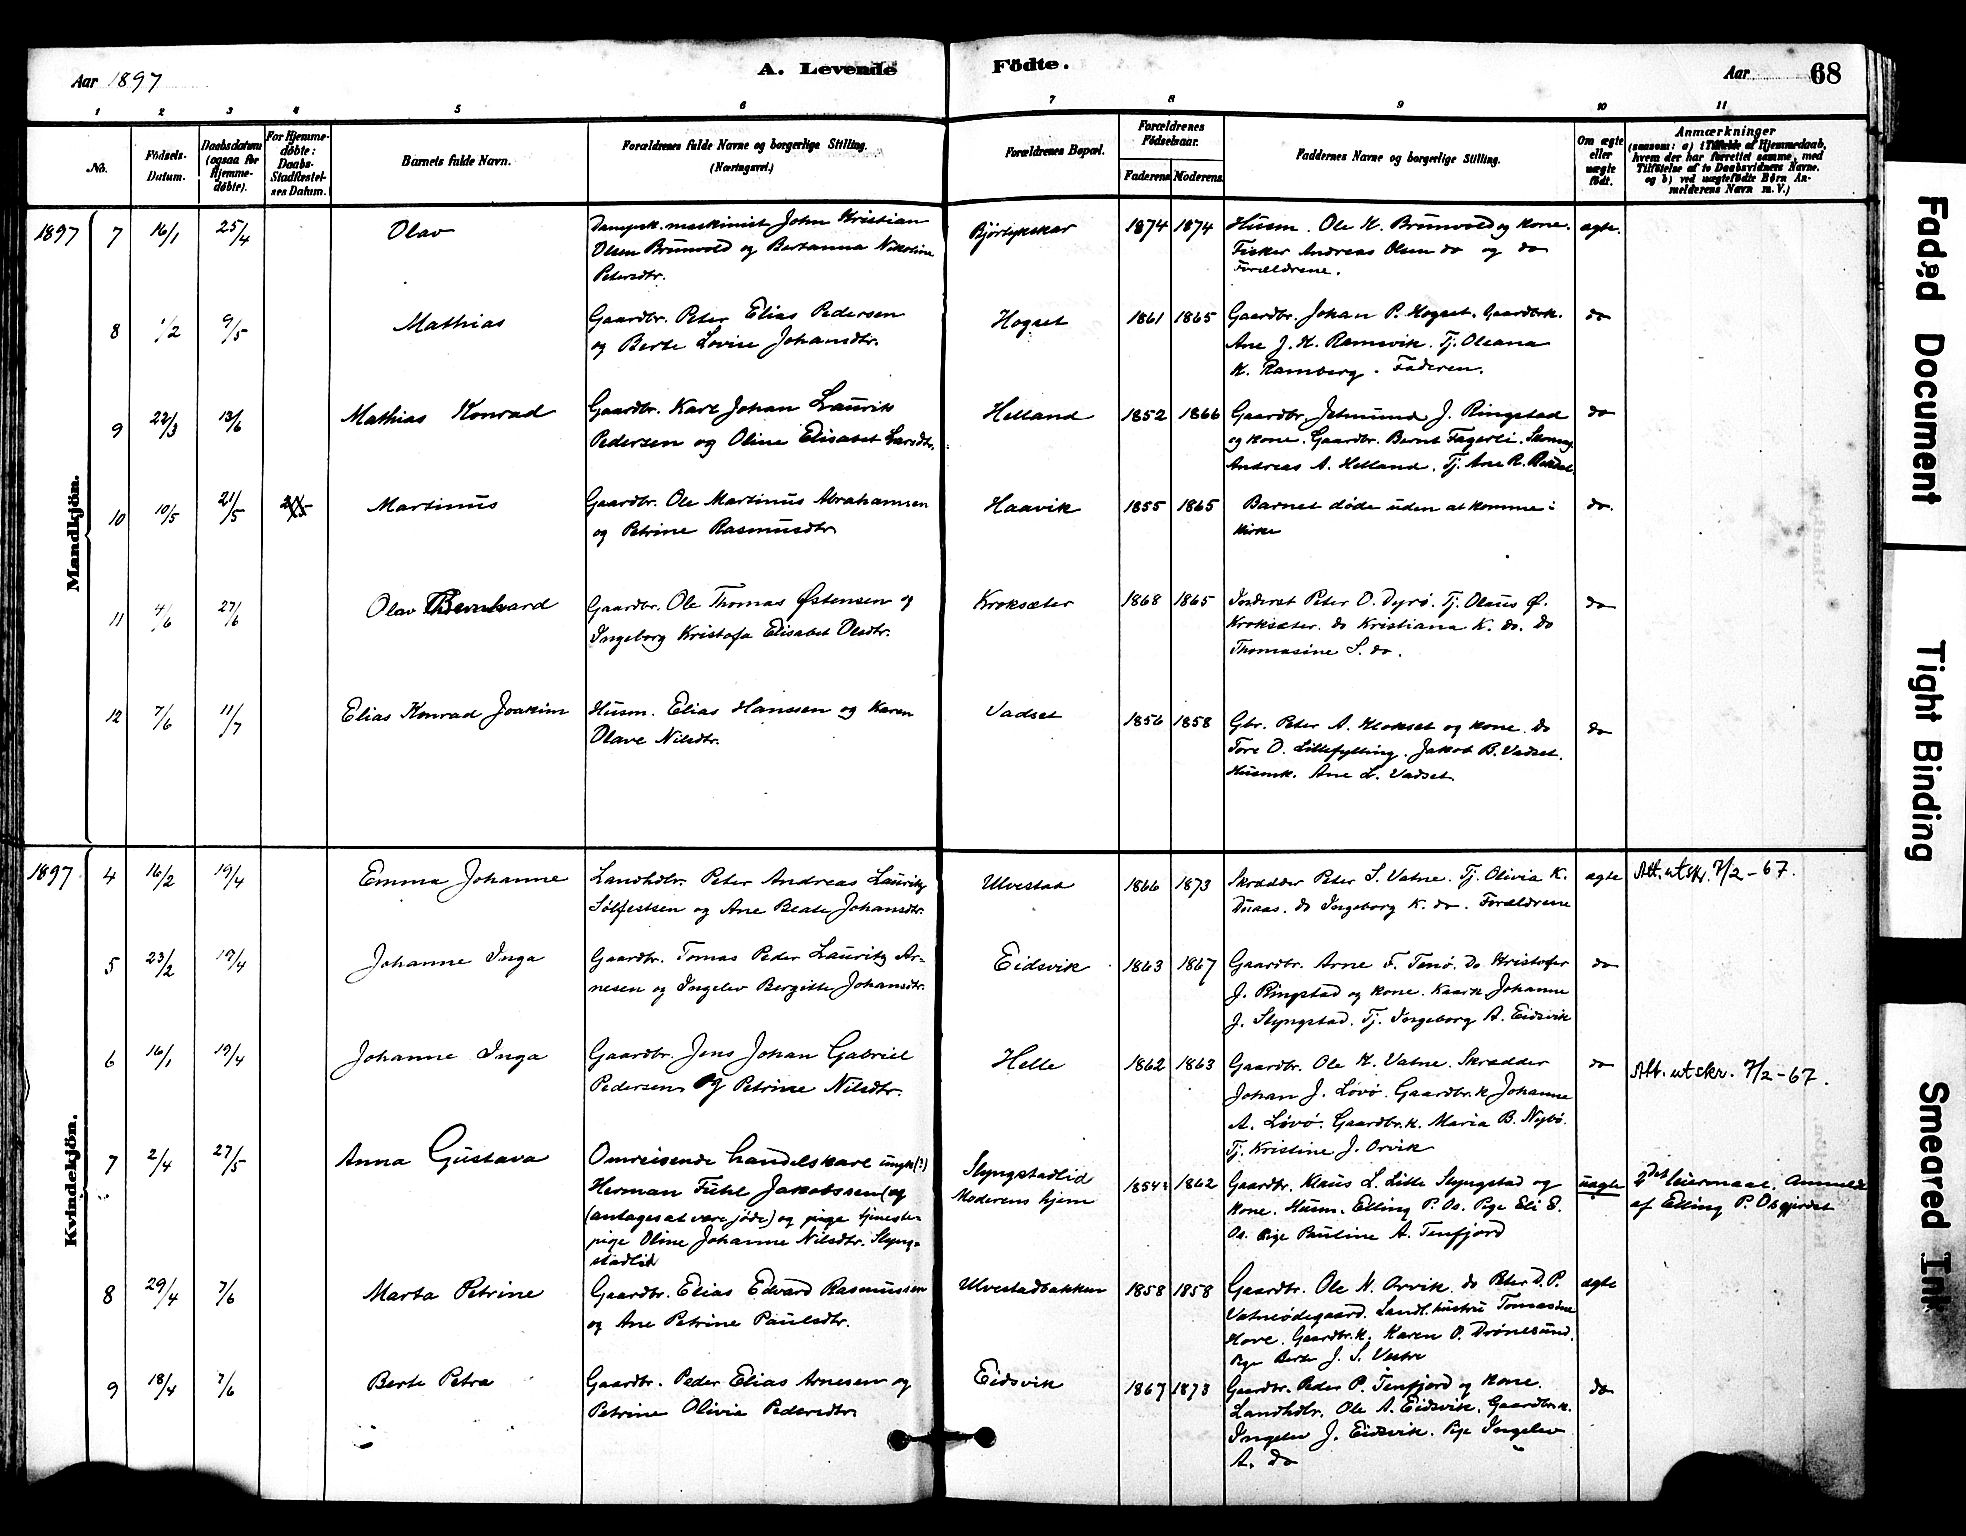 Aar 1897
A. Levende
Födte.
Aar 68
1 2 3 4 5 6 7 8 9 10 11
No.
Födsels-
Datum.
Daabsdatum
(ogsaa for
Hjemme-
döbte).
For Hjemme-
döbte:
Daabs-
Stadfæstel-
ses Datum.
Barnets fulde Navn.
Forældrenes fulde Navne og borgerlige Stilling.
(Næringsvei.)
Forældrenes Bopæl.
Forældrenes
Födselsaar.
Faderens Moderens.
Faddernes Navne og borgerlige Stilling.
Om ægte
eller
uægte
födt.
Anmærkninger
(saasom: a) i Tilfælde af Hjemmedaab,
hvem der har forrettet samme, med
Tilföielse af to Daabsvidners Navne.
og b) ved uægtefödte Börn An-
melderens Navn m. V.)
Mandkjön.
1897 7 16/1 25/4 Olav
Dampsk. maskinist John Kristian
Olsen Brunvold og Bertanna Nikoline
Petersdtr.
1874 1874
Husm. Ole K. Brunvold og kone.
Fisker Andreas Olsen do og do
Forældrene.
ægte.
8 1/2 9/5 Mathias
Gaardbr. Peter Elias Pedersen
og Berte Lovise Johansdtr.
Hogset 1861 1865
Gaardbr. Johan P. Hogset. Gaardbrk.
Ane J. H. Ramsvik. Tj. Oleana
K. Ramberg. Faderen.
do
9 22/3 13/6 Mathias Konrad
Gaardbr. Karl Johan Laurits
Pedersen og Oline Elisabet Larsdtr.
Helland 1852 1866
Gaardbr. Jetmund J. Ringstad
og kone. Gaardbr. Bernt Fagerli.
Andreas A. Helland. Tj. Ane R.
do
10 10/5 21/5 Martinus
Gaardbr. Ole Martinus Abrahamsen
og Petrine Rasmusdtr.
Haavik 1855 1865
Barnet døde uden at komme i
kirke
do.
11 4/6 27/6 Olav Bernhard
Gaardbr. Ole Thomas Østensen og
Ingeborg Kristofa Elisabet Olsdtr.
Kroksæter 1868 1865
Inderst Peter O. Dyrø. Tj. Olaus Ø.
Kroksæter. do Kristiana K. do. do
Thomasine S. do.
do
12 7/6 11/7 Elias Konrad Joakim
Husm. Elias Hanssen og Karen
Olave Nilsdtr.
Vadset 1856 1858
Gbr. Peter A. Klokset og kone. do
Tore O. Lillefylling. Jakob B. Vadset.
Husmk. Ane L. Vadset.
do
Kvindekjön.
1897 4 16/2 19/4 Emma Johanne
Landhdlr. Peter Andreas Lauritz
Sølfestsen og Ane Beate Johansdtr.
Ulvestad 1866 1873
Skrædder Peter S. Vatne. Tj. Olivia K.
do Ingeborg K. do. Forældrene
ægte
Att. utskr. 7/2-67.
5 23/2 19/4 Johanne Inga
Gaardbr. Tomas Peder Lauritz Ar-
nesen og Ingelev Bergitte Johansdtr.
Eidsvik 1863 1867
Gaardbr. Arne F. Tenø. do Kristofer
J. Ringstad og kone. Kaark Johanne
J. Slyngstad. Tj. Ingeborg A. Eidsvik
do
6 16/1 19/4 Johanne Inga
Gaardbr. Jens Johan Gabriel
Pedersen og Petrine Nilsdtr.
Helle 1862 1863
Gaardbr. Ole K. Vatne. Skrædder
Johan J. Løvø. Gaardbr.k Johanne
A. Løvø. Gaardbr.k. Maria B. Nybø.
Tj. Kristine J. Orvik
do
Att. utskr. 7/2-67.
7 2/4 27/5 Anna Gustava
Omreisende handelskarl ungk(?)
Herman Fühl Jakobssen (og
(antages at være jøde) og pige tjeneste-
pige Oline Johanne Nilsdtr. Slyng-
stadlid
Slyngstadlid
Moderens hjem
1854? 1862
Gaardbr. Klaus L. Lille Slyngstad og
kone. Husm. Elling P. Os. Pige Eli E.
Os. Pige Pauline A. Tenfjord
uægte
2det leiermaal. Anmeldt
af Elling P. Osgjerdet
8 29/4 7/6 Marta Petrine
Gaardbr. Elias Edvard Rasmussen
og Ane Petrine Paulsdtr.
Ulvestadbakken 1858 1858
Gaardbr. Ole N. Orvik. do Peter D. P.
Vatneødegaard. Landh. hustru Tomasine
Hove. Gaardbr.k. Karen P. Drønesund.
Pige Berte J. S. Vestre
ægte
9 18/4 7/6 Berte Petra
Gaardbr. Peder Elias Arnesen og
Petrine Olivia Pedersdtr.
Eidsvik 1867 1873
Gaardbr. Peder P. Tenfjord og kone.
Landhdlr. Ole A. Eidsvik. Gaardbr.k.
Ingelev J. Eidsvik. Pige Ingelev
A. do
do
Faded Document
Tight Binding
Smeared Ink